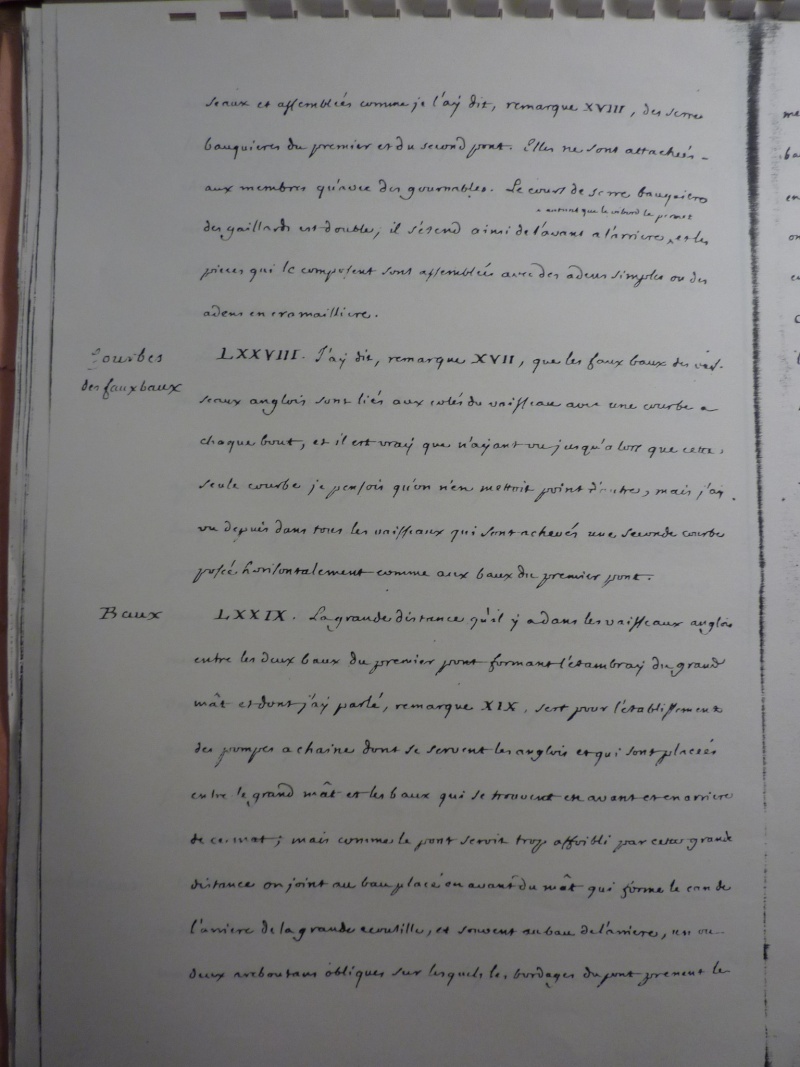 seaux et assemblées comme je l'aÿ dit, remarque XVIII, des serre
bauquieres du premier et du second pont. Elles ne sont attachées
aux membres qu'avec des gournables. Le cours de serre bauquieres
autant que le vibord le permet
des gaillards est double, il s'étend ainsi de l'avant a l'arriere, et les
pieces qui le composent sont assemblées avec des adens simples ou des
adens en cramailliere.
Courbes
des faux baux
LXXVIII. J'aÿ dit, remarque XVII, que les faux baux des vais-
seaux anglois sont liés aux cotés du vaisseau avec une courbe a
chaque bout, et il est vraÿ que n'aÿant vu jusqu'alors que cette
seule courbe je pensois qu'on n'en mettoit point d'autre, mais j'aÿ
vu depuis dans tous les vaisseaux qui sont achevés une seconde courbe
posée horisontalement comme aux baux du premier pont.
Baux
LXXIX. La grande distance qu'il ÿ a dans les vaisseaux anglois
entre les deux baux du premier pont formant l'étambraÿ du grand
mât et dont j'aÿ parlé, remarque XIX, sert pour l'établissement
des pompes a chaine dont se servent les anglois et qui sont placées
entre le grand mât et les baux qui se trouvent en avant et en arriere
de ce mat; mais comme le pont seroit trop affoibli par cette grande
distance on joint au bau placé en avant du mât qui forme le can de
l'arriere de la grande ecoutille, et souvent au bau de l'arriere, un ou
deux arcboutans obliques sur lesquels les bordages du pont prenent le